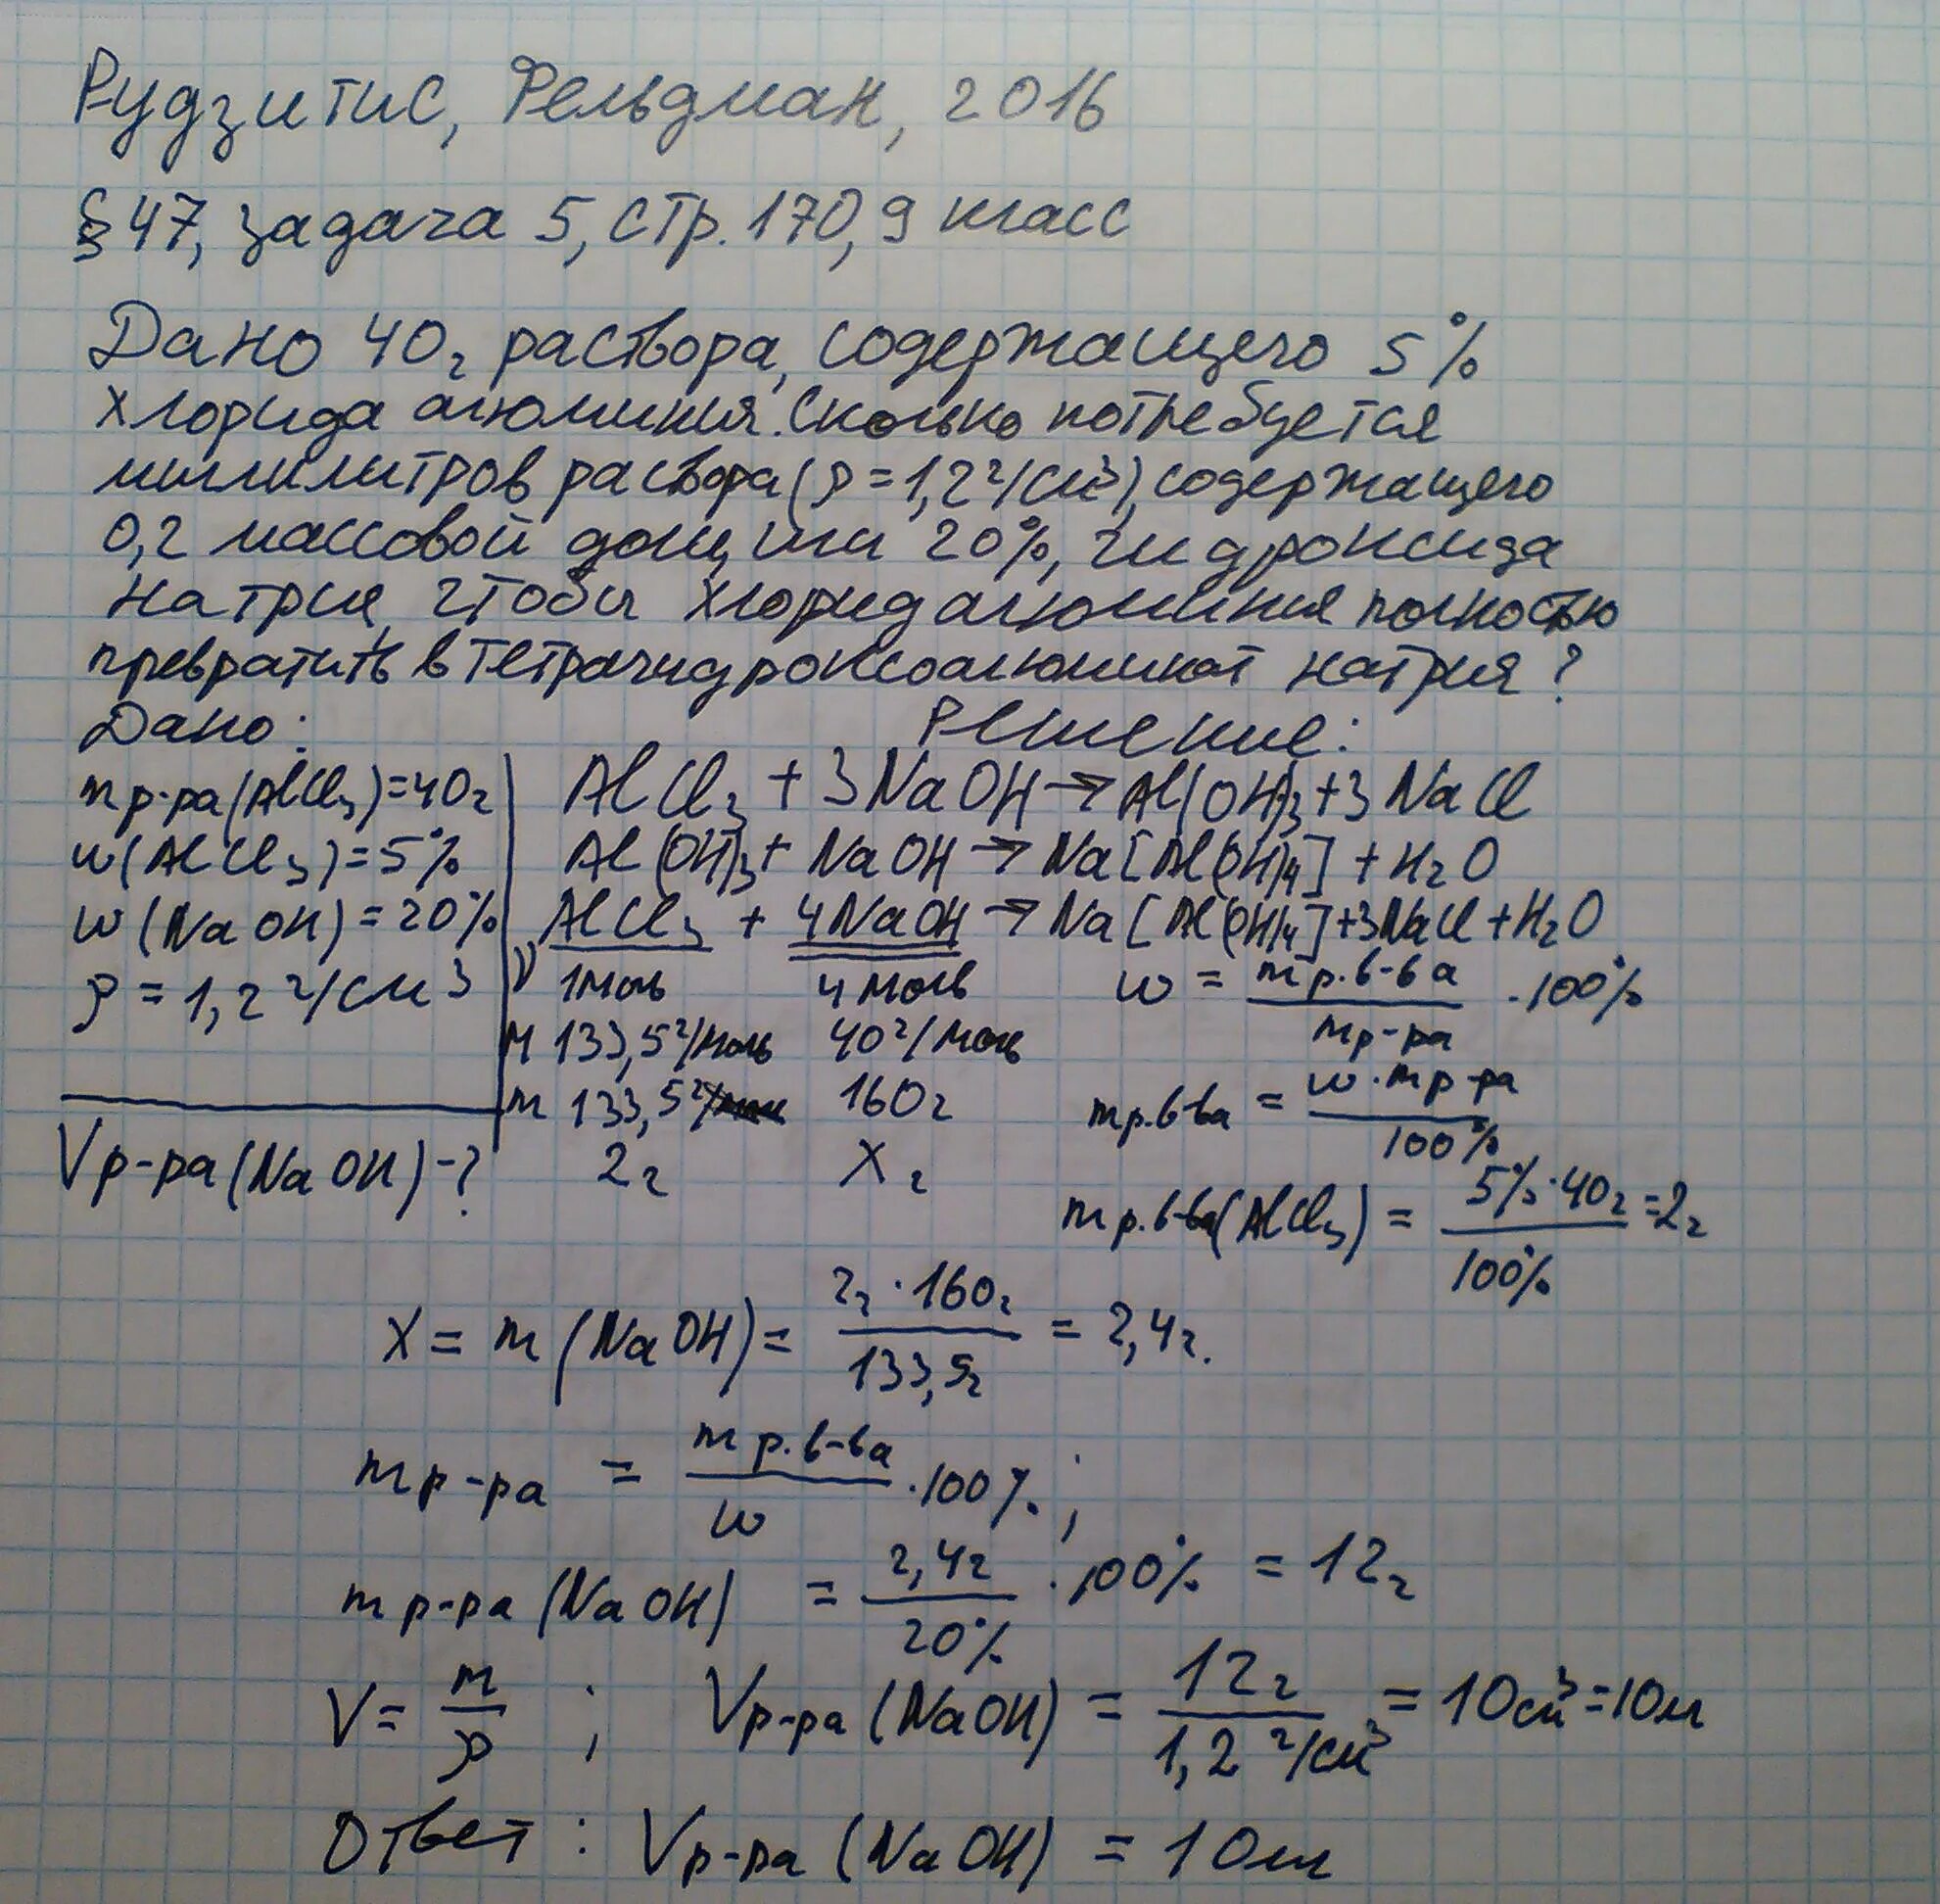 Рудзитис, Фельдман, 2016
§ 47, задача 5, стр. 170, 9 класс
Дано 40г раствора, содержащего 5%
хлорида алюминия. Сколько потребуется
миллилитров раствора (ρ = 1,2 г/см³), содержащего
0,2 массовой доли, или 20%, гидроксида
натрия, чтобы хлорид алюминия полностью
превратить в тетрагидроксоалюминат натрия?
Дано:
Решение:
mр-ра(AlCl₃)=40г
w(AlCl₃)=5%
w(NaOH)=20%
ρ = 1,2 г/см³
Vр-ра(NaOH)-?
AlCl₃ + 3NaOH → Al(OH)₃+3NaCl
Al(OH)₃+ NaOH → Na[Al(OH)₄] + H₂O
AlCl₃ + 4NaOH → Na[Al(OH)₄]+3NaCl+H₂O
ν 1моль 4моль
M 133,5г/моль 40г/моль
m 133,5г 160г
2г Xг
w = mр.в-ва / mр-ра · 100%
mр.в-ва = w·mр-ра / 100%
mр.в-ва(AlCl₃) = 5%·40г / 100% =2г
X = m(NaOH) = 2г·160г / 133,5г = 2,4г.
mр-ра = mр.в-ва / w ·100%;
mр-ра(NaOH) = 2,4г / 20% · 100% = 12г
V = m / ρ ; Vр-ра(NaOH) = 12г / 1,2 г/см³ = 10см³=10мл
Ответ: Vр-ра(NaOH) = 10мл